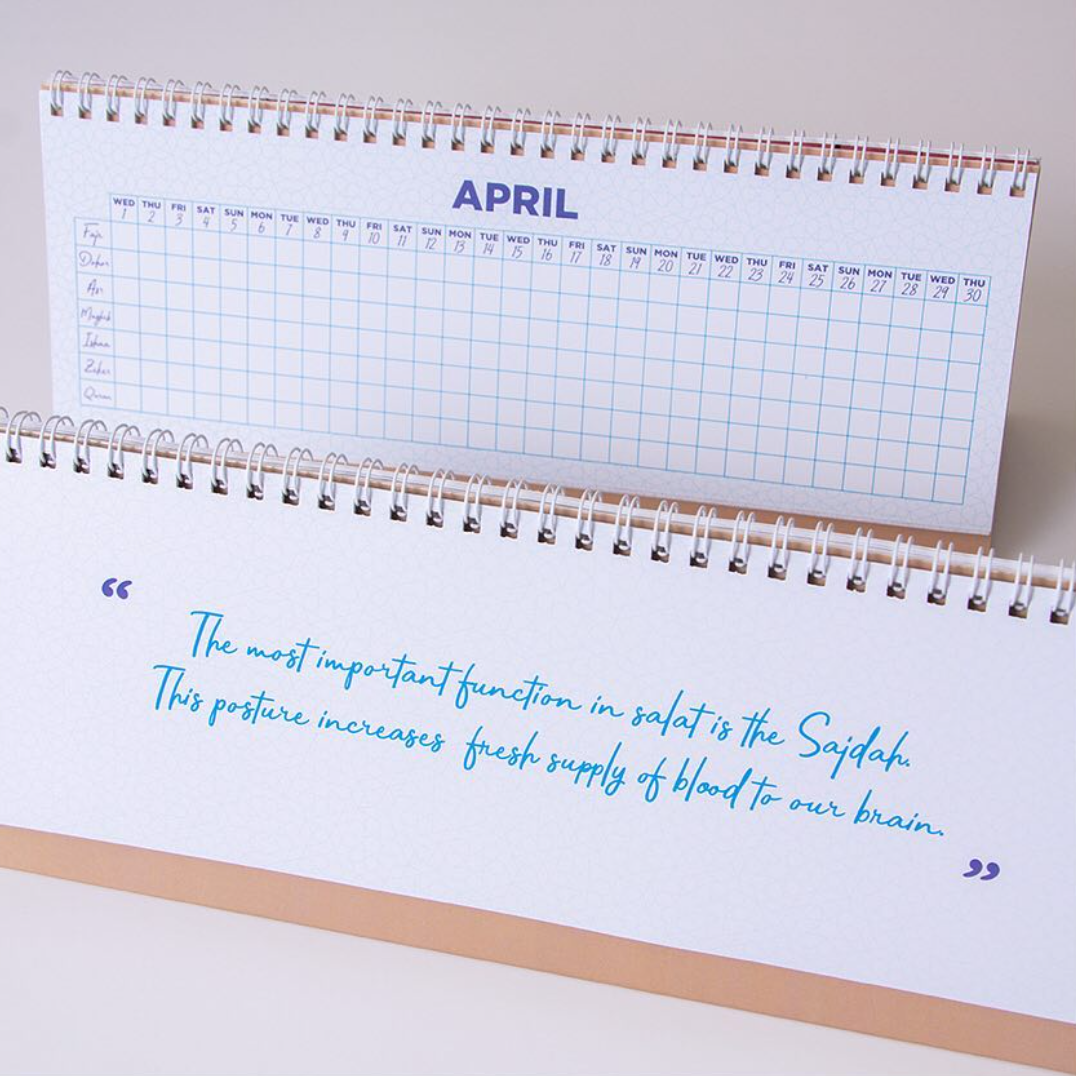 APRIL
WED THU FRI SAT SUN MON TUE WED THU FRI SAT SUN MON TUE WED THU FRI SAT SUN MON TUE WED THU FRI SAT SUN MON TUE WED THU
1 2 3 4 5 6 7 8 9 10 11 12 13 14 15 16 17 18 19 20 21 22 23 24 25 26 27 28 29 30
Fajr
Asr
Maghrib
Ishaa
Quran
“
The most important function in salat is the Sajdah.
This posture increases fresh supply of blood to our brain.
”